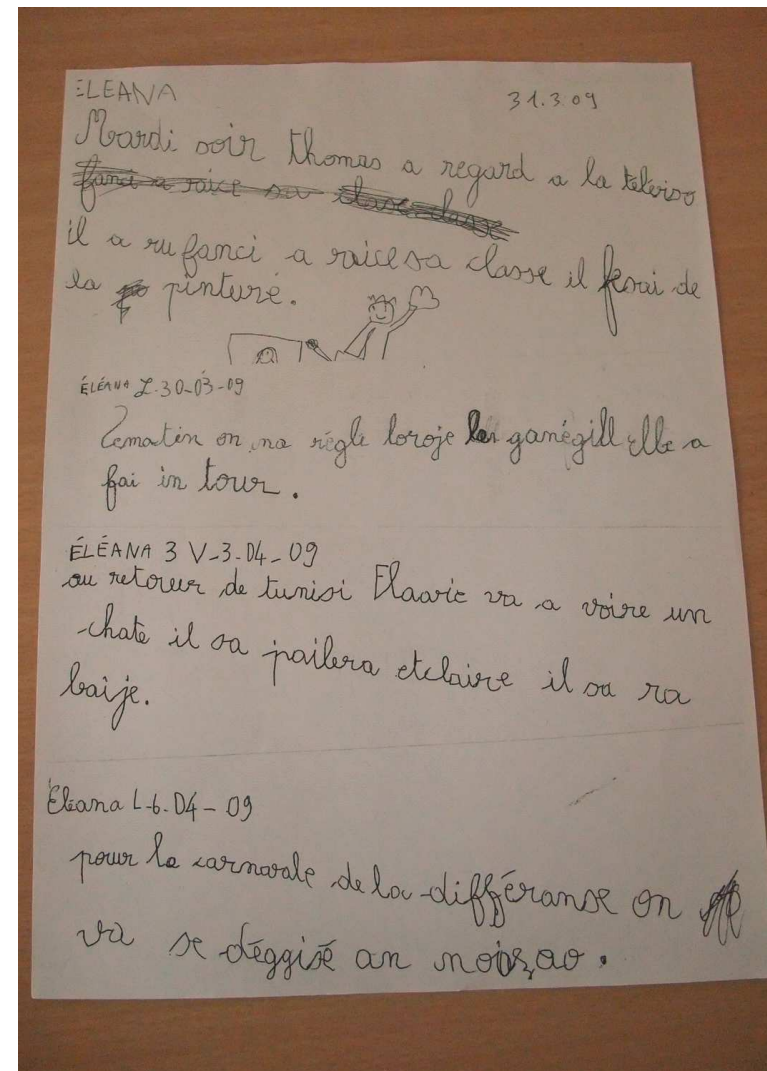 ELEANA 31.3.09
Mardi soir thomas a regard a la téléviso
il a vu fanci a raice sa classe il fesai de
la pinture.
ÉLÉANA L-30-03-09
Lematin on na règle loroje les ganégill elle a
fai in tour.
ÉLÉANA 3 V-3-04-09
au retour de tunisi Elaaric va a voire un
chate il sa pailera etclaire il sa ra
baije.
Eléana L-6-04-09
pour le carnavale de la différanse on
va se déggisé an noizao.